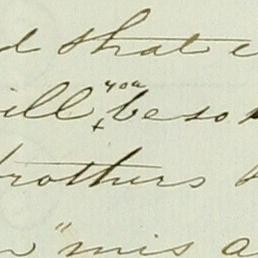 d that
will you be so
brothers
"mis a